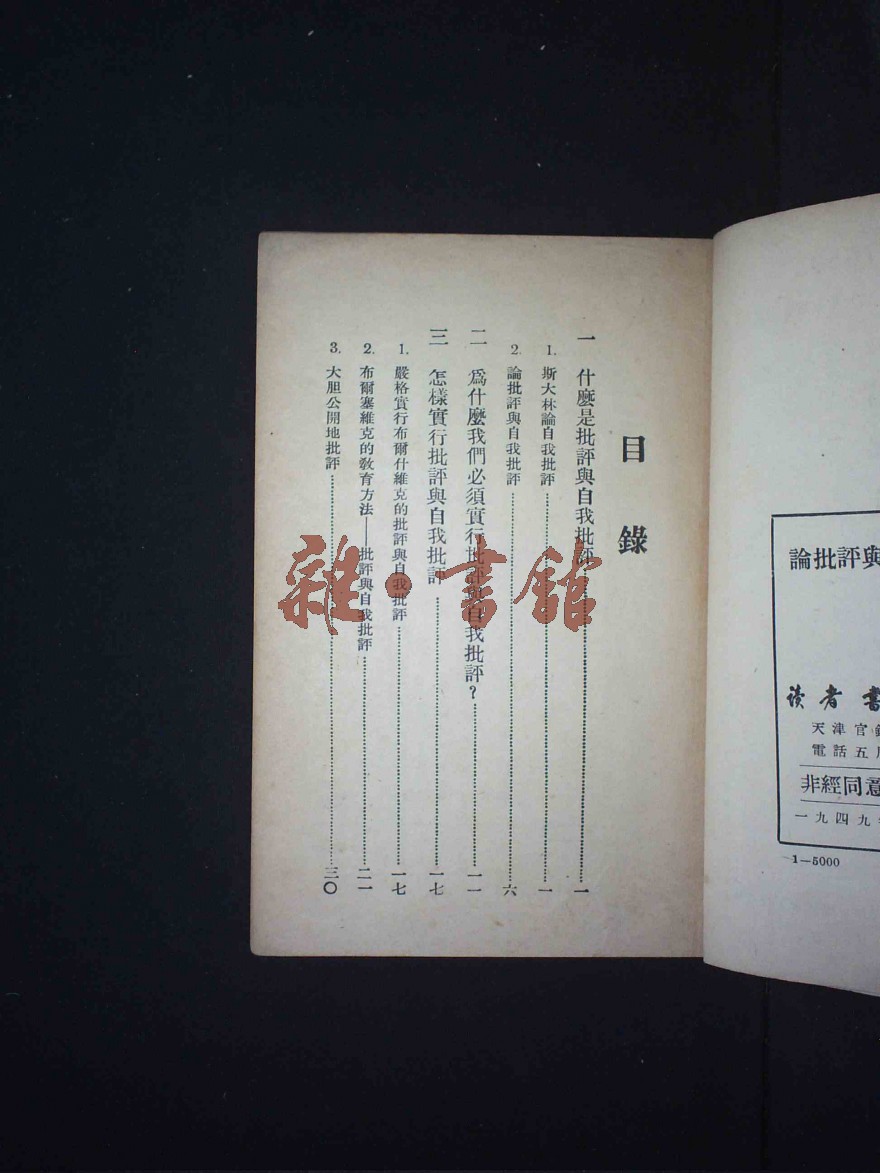 目錄
一 什麼是批評與自我批評……一
1. 斯大林論自我批評……一
2. 論批評與自我批評……六
二 爲什麼我們必須實行批評與自我批評？……一一
三 怎樣實行批評與自我批評……一七
1. 嚴格實行布爾什維克的批評與自我批評……一七
2. 布爾塞維克的敎育方法——批評與自我批評……二一
3. 大胆公開地批評……三〇
雜·書館
論批評與
读者書
天津官
電話五
非經同意
一九四九
1—5000